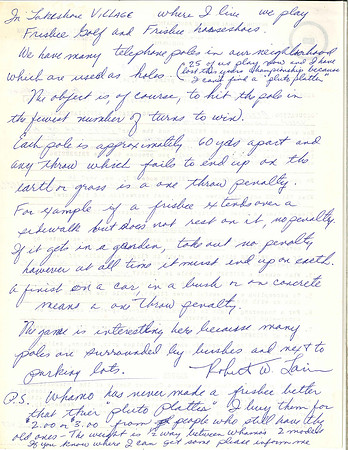 In Lakeshore Village where I live we play
Frisbee Golf and Frisbee horseshoes.
We have many telephone poles in our neighborhood
which are used as holes. (25 of us play now and I have
lost this years championship because
I cant find a "pluto platter")
The object is, of course, to hit the pole in
the fewest number of turns to win.
Each pole is approximately 60 yds apart and
any throw which fails to end up on the
earth or grass is a one throw penalty.
For example if a frisbee extends over a
sidewalk but does not rest on it, no penalty.
If it gets in a garden, take out no penalty
however at all time it must end up on earth.
A finish on a car, in a bush or on concrete
means a one throw penalty.
The game is interesting here because many
poles are surrounded by bushes and next to
parking lots.
Robert W.
P.S. Whamo has never made a frisbee better
that thier pluto platter" I buy them for
"2.00 or "3.00 from people who still have the
old ones - The weight is ½ way between whamos 2 models
If you know where I can get some please inform me